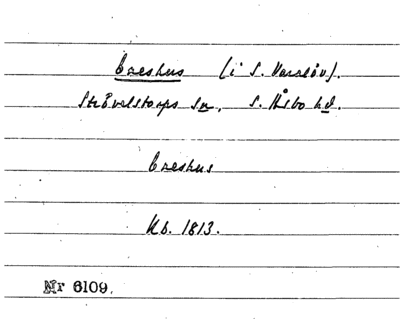 Crashus (i S. Varalöv).
Strövelstorps sn. S. Åsbo hd.
Crashus
Kb. 1813.
Nr 6109.